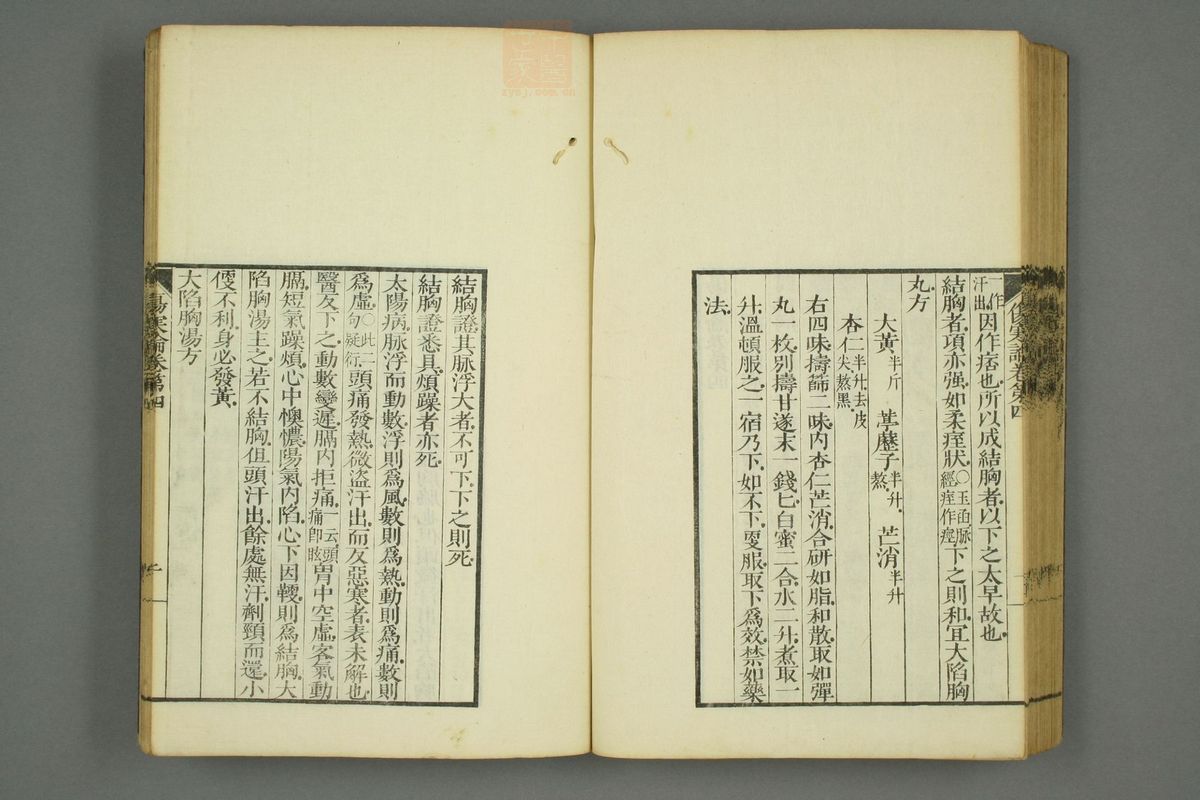 傷寒論卷第四
一作汗出因作痞也所以成結胸者以下之太早故也
結胸者項亦強如柔痓狀○玉函脉經痓作痙下之則和宜大陷胸
丸方
大黃半斤 葶藶子半升熬 芒消半升
杏仁半升去皮尖熬黑
右四味擣篩二味內杏仁芒消合研如脂和散取如彈
丸一枚別擣甘遂末一錢匕白蜜二合水二升煮取一
升溫頓服之一宿乃下如不下更服取下爲效禁如藥
法
結胸證其脉浮大者不可下下之則死
結胸證悉具煩躁者亦死
太陽病脉浮而動數浮則爲風數則爲熱動則爲痛數則
爲虛○此二句疑衍頭痛發熱微盜汗出而反惡寒者表未解也
醫反下之動數變遲膈內拒痛一云頭痛即眩胃中空虛客氣動
膈短氣躁煩心中懊憹陽氣內陷心下因鞕則爲結胸大
陷胸湯主之若不結胸但頭汗出餘處無汗劑頸而還小
便不利身必發黃
大陷胸湯方
傷寒論卷第四
二
zysj.com.cn